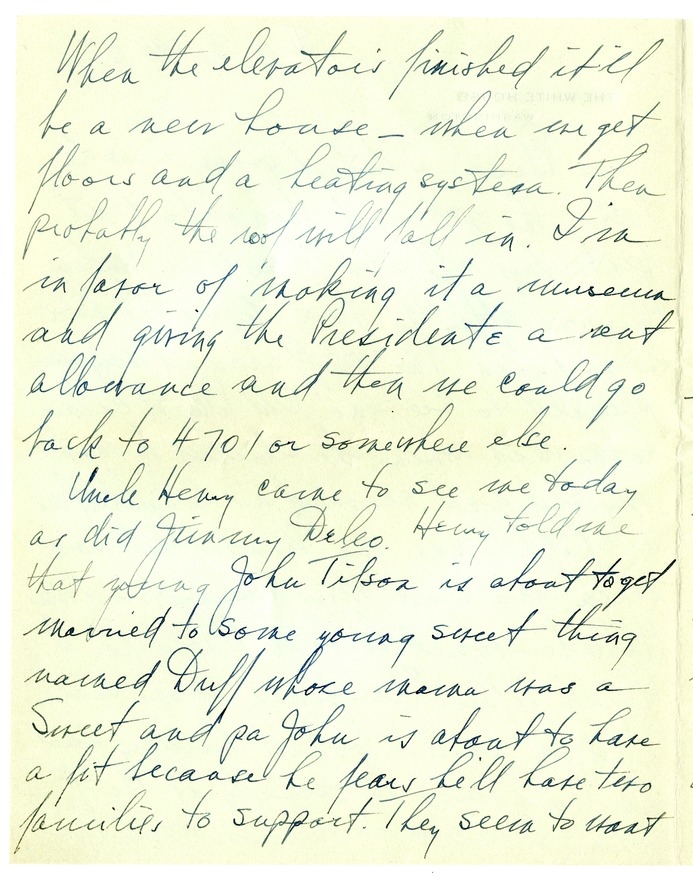 When the elevator is finished it'll
be a new house — when we get
floors and a heating system. Then
probably the roof will fall in. I'm
in favor of making it a museum
and giving the Presidents a rent
allowance and then we could go
back to 4701 or somewhere else.
Uncle Henry came to see me today
as did Jimmy Deleo. Henry told me
that young John Tilson is about to get
married to some young sweet thing
named Duff whose mama was a
Sweet and pa John is about to have
a fit because he fears he'll have two
families to support. They seem to want